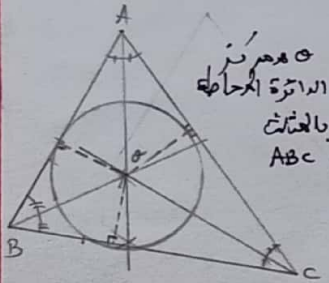 A
θ هو مركز
الدائرة المحاطة
بالمثلث
ABC
θ
B
C